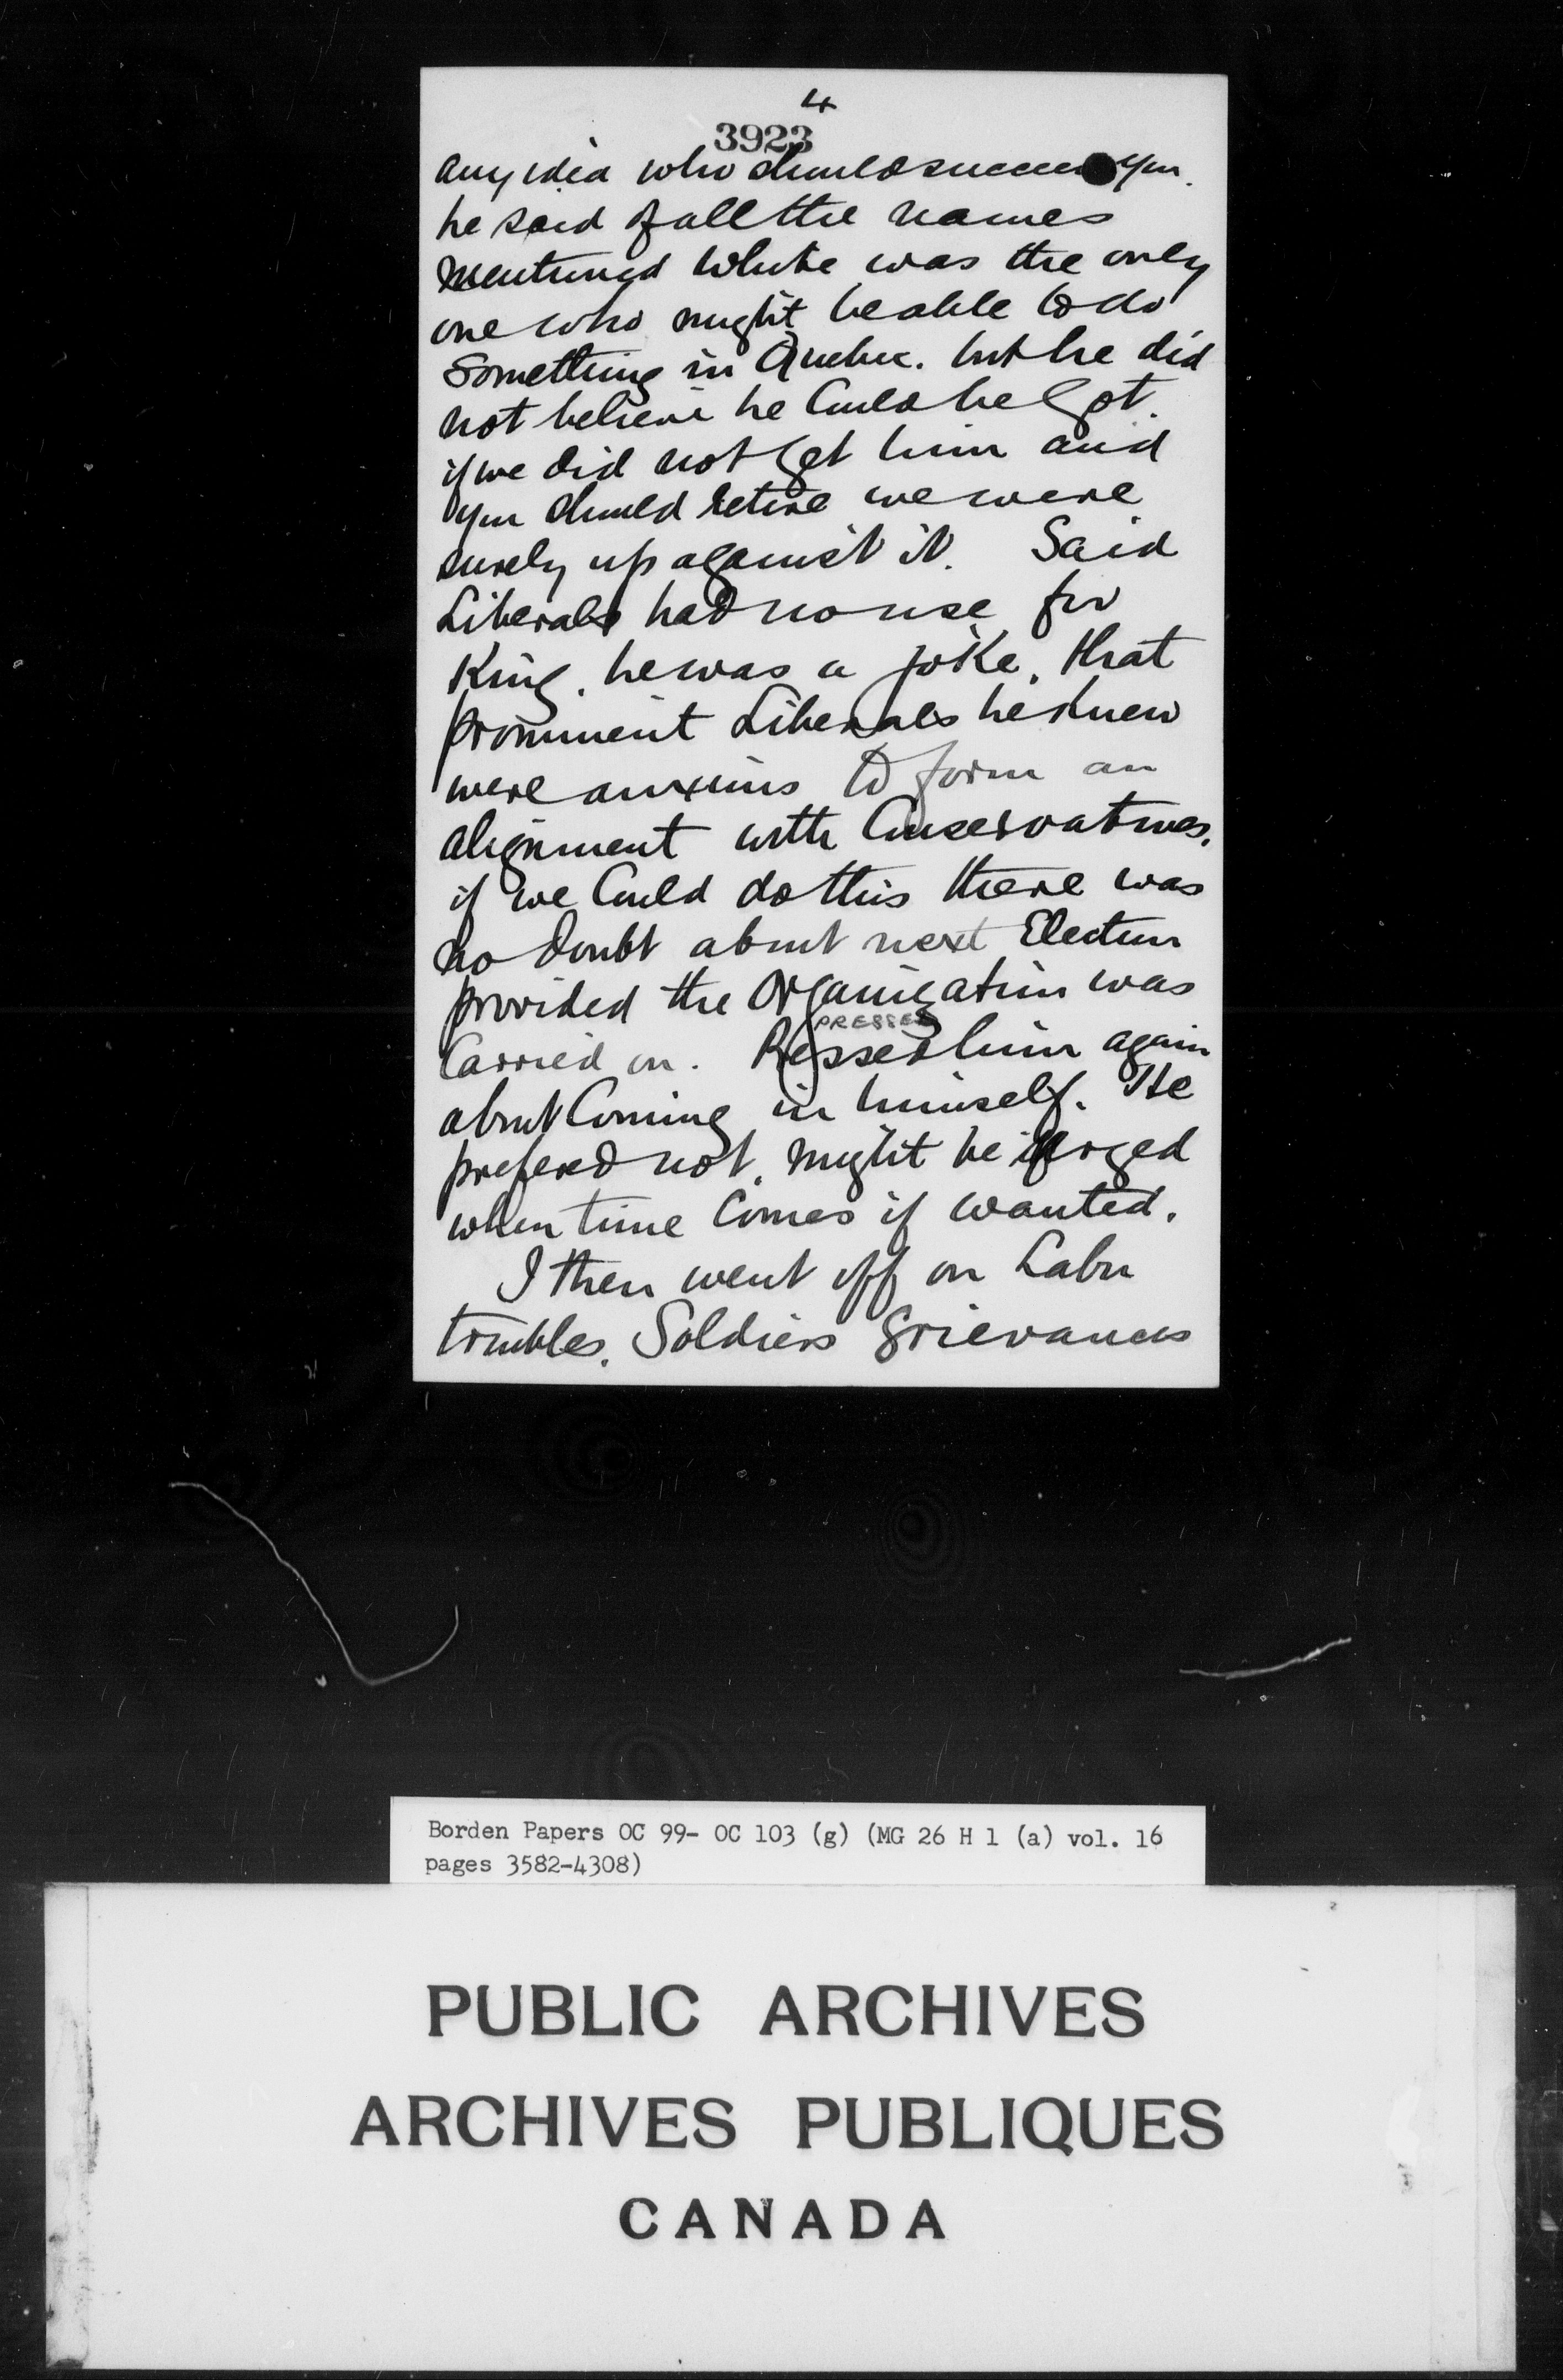 4
3923
any idea who should succeed you.
he said of all the names
mentioned White was the only
one who might be able to do
something in Quebec. but he did
not believe he Could be Got.
if we did not Get him and
you should retire we were
surely up against it. Said
Liberals had no use for
King. he was a joke. that
prominent Liberals he knew
were anxious to form an
alignment with Conservatives.
if we Could do this there was
no doubt about next Election
provided the Organization was
PRESSED
Carried on. Pressed him again
about Coming in himself. He
prefered not. might be urged
when time Comes if wanted.
I then went off on Labor
troubles. Soldiers Grievances
Borden Papers OC 99- OC 103 (g) (MG 26 H 1 (a) vol. 16
pages 3582-4308)
PUBLIC ARCHIVES
ARCHIVES PUBLIQUES
CANADA